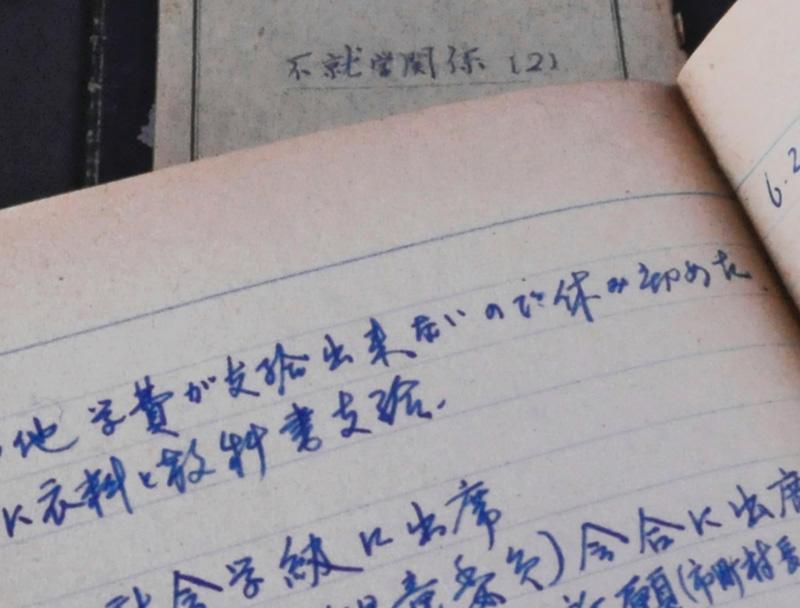 不就学関係(2)
6.2
他 学費が支給出来ないので休み初めた
に衣料と教科書支給.
社会学級に出席
児童委員)会合に出席
願(市町村長